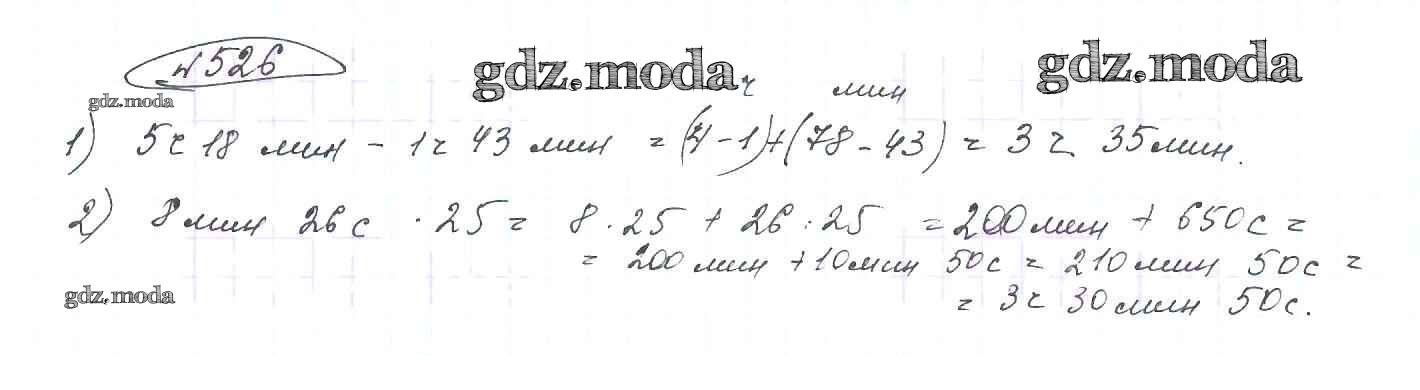 № 526
gdz.moda
gdz.moda
gdz.moda
ч мин
1) 5ч 18 мин - 1ч 43 мин = (4-1)+(78-43) = 3ч 35мин.
2) 8мин 26с · 25 = 8·25 + 26:25 = 200мин + 650с =
= 200 мин +10мин 50с = 210мин 50с =
gdz.moda
= 3ч 30мин 50с.